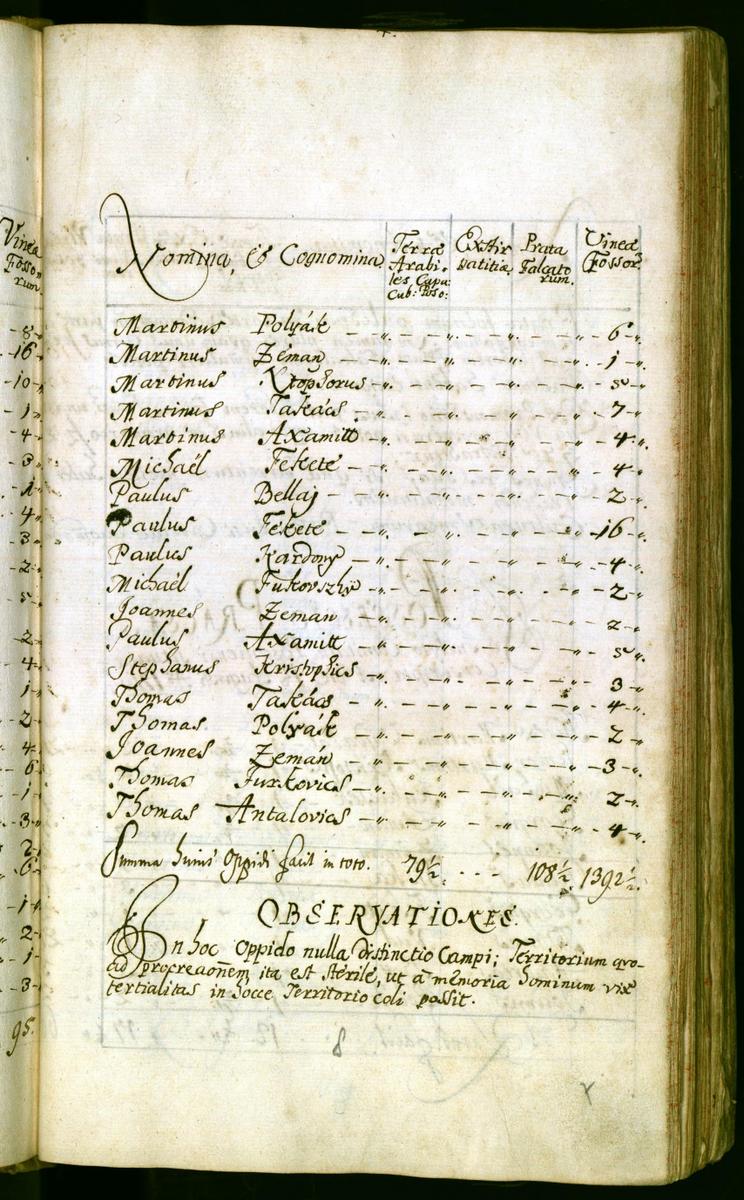 Vineæ
Fosso
rum
8
16
10
1
4
3
1
4
3
2
5
2
4
1
2
4
6
1
3
2
6
1
2
1
3
95.
Nomina, & Cognomina
Terræ
Arabi-
les Capa:
Cub: Poso:
Extir
patitiæ
Prata
Falcato
rum.
Vineæ
Fossor:
Martinus Polyák — „ — „ — „ — 6 „
Martinus Zeman — „ — „ — „ — 1 „
Martinus Xtophorus — „ — „ — „ — 5 „
Martinus Takács — „ — „ — „ — 7 „
Martinus Axamitt — „ — „ — „ — 4 „
Michaël Fekete — „ — „ — „ — 4 „
Paulus Bellaj — „ — „ — „ — 2 „
Paulus Fekete — „ — „ — „ — 16 „
Paulus Kardony — „ — „ — „ — 4 „
Michaël Fukovszky — „ — „ — „ — 2 „
Joannes Zeman — „ — „ — „ — 2 „
Paulus Axamitt — „ — „ — „ — 5 „
Stephanus Kristophics — „ — „ — „ — 3 „
Thomas Takács — „ — „ — „ — 4 „
Thomas Polyák — „ — „ — „ — 2 „
Joannes Zemán — „ — „ — „ — 3 „
Thomas Jurkovics — „ — „ — „ — 2 „
Thomas Antalovics — „ — „ — „ — 4 „
Summa huius Oppidi facit in toto. 79½ . - - - 108½. 1392½.
OBSERVATIONES.
In hoc Oppido nulla distinctio Campi; Territorium quo-
ad procreaōnem ita est sterile, ut â memoria hominum vix
tertialitas in hocce Territorio coli possit.
8